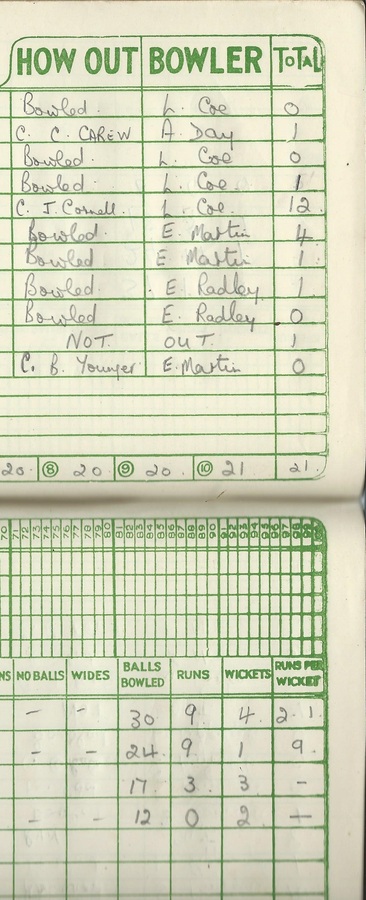 HOW OUT BOWLER TOTAL
Bowled. L. Coe 0
C. C. CAREW A. Day 1
Bowled. L. Coe 0
Bowled. L. Coe. 1
C. J. Cornell. L. Coe. 12
Bowled. E. Martin 4
Bowled E. Martin 1
Bowled. E. Radley. 1
Bowled E. Radley 0
NOT. OUT. 1
C. B. Younger E. Martin 0
20. 8 20. 9 20. 10 21 21.
70 71 72 73 74 75 76 77 78 79 80 81 82 83 84 85 86 87 88 89 90 91 92 93 94 95 96 97 98 99
NS NO BALLS WIDES BALLS BOWLED RUNS WICKETS RUNS PER WICKET
- - 30 9. 4. 2.1.
- - 24. 9 1 9.
17 3. 3 -
- - 12 0 2 -